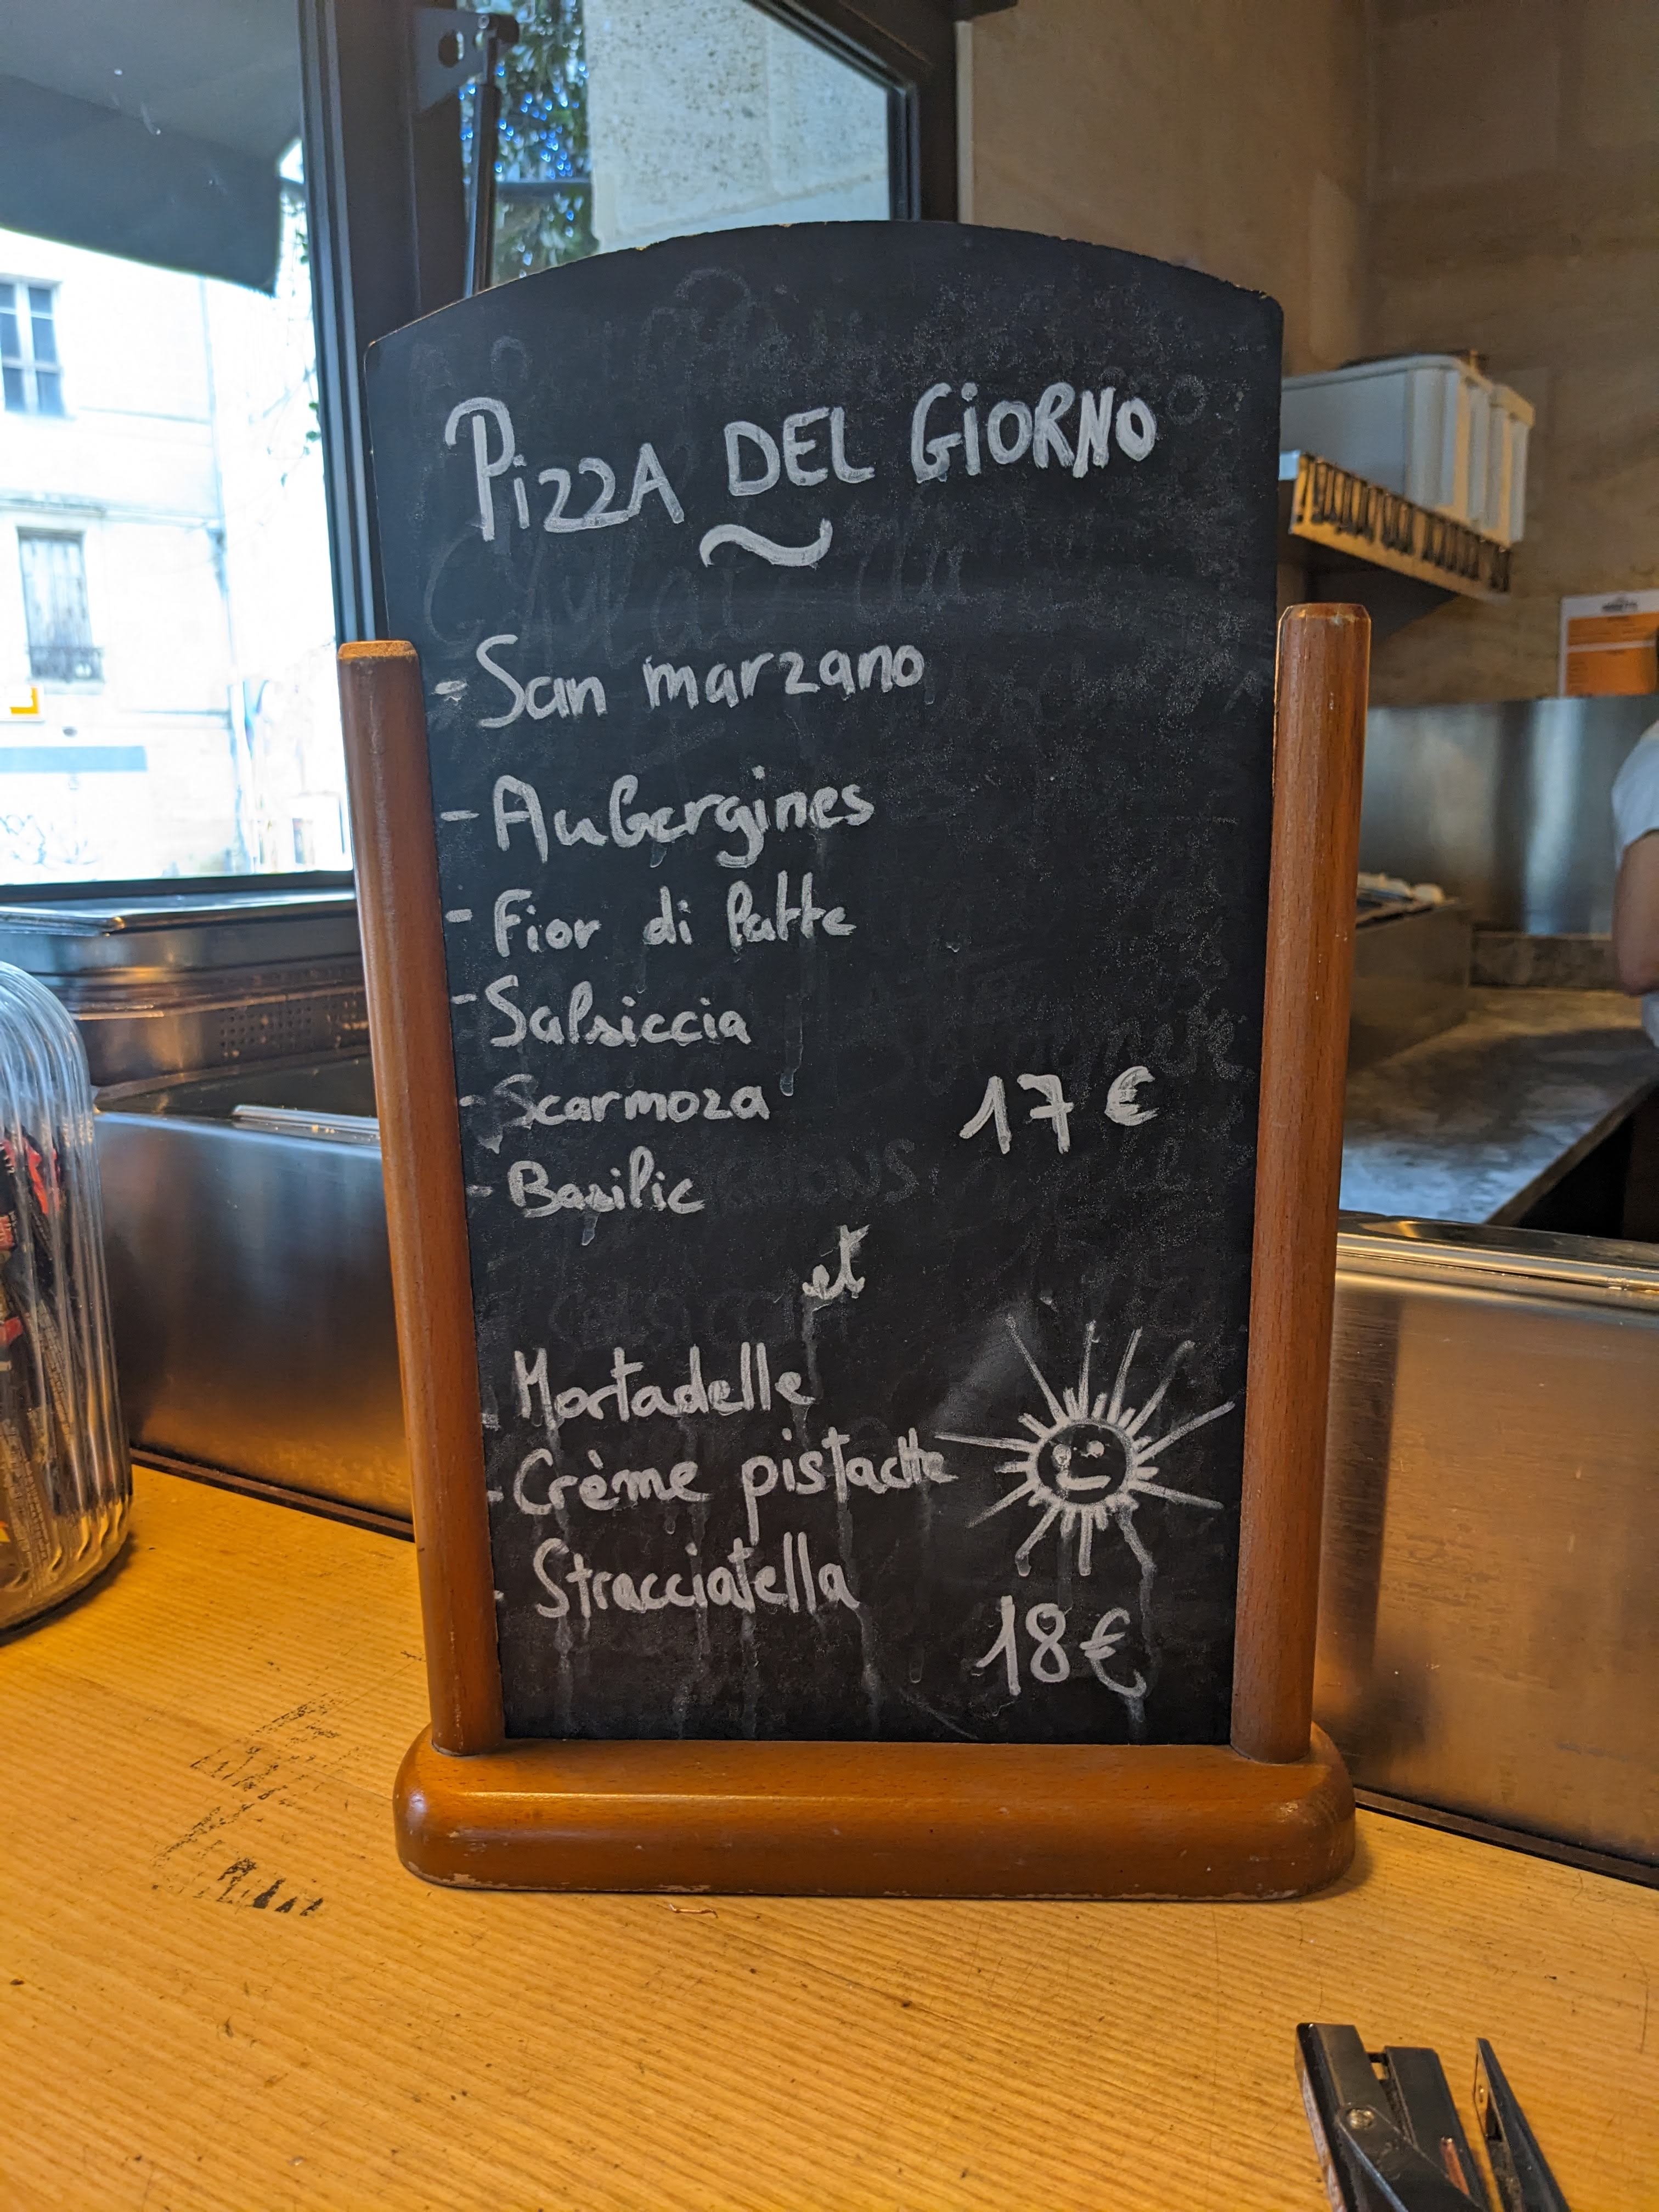 PizzA DEL GiORNO
- San marzano
- Aubergines
- Fior di latte
- Salsiccia
- Scarmoza
17 €
- Basilic
et
- Mortadelle
- Crème pistache
- Stracciatella
18 €